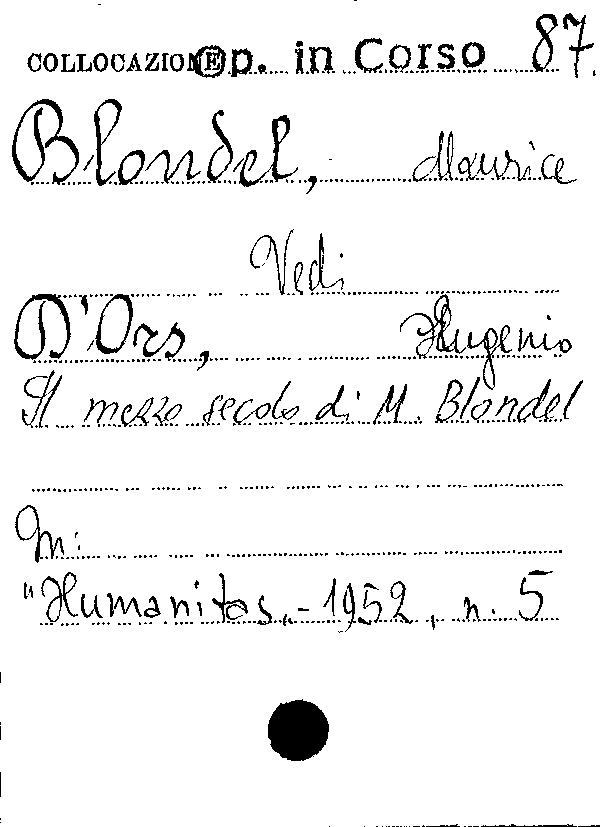 COLLOCAZIONE Op. in Corso 87.
Blondel, Maurice
Vedi
D'Ors, Eugenio
Il mezzo secolo di M. Blondel
In:
"Humanitas„ - 1952, n. 5